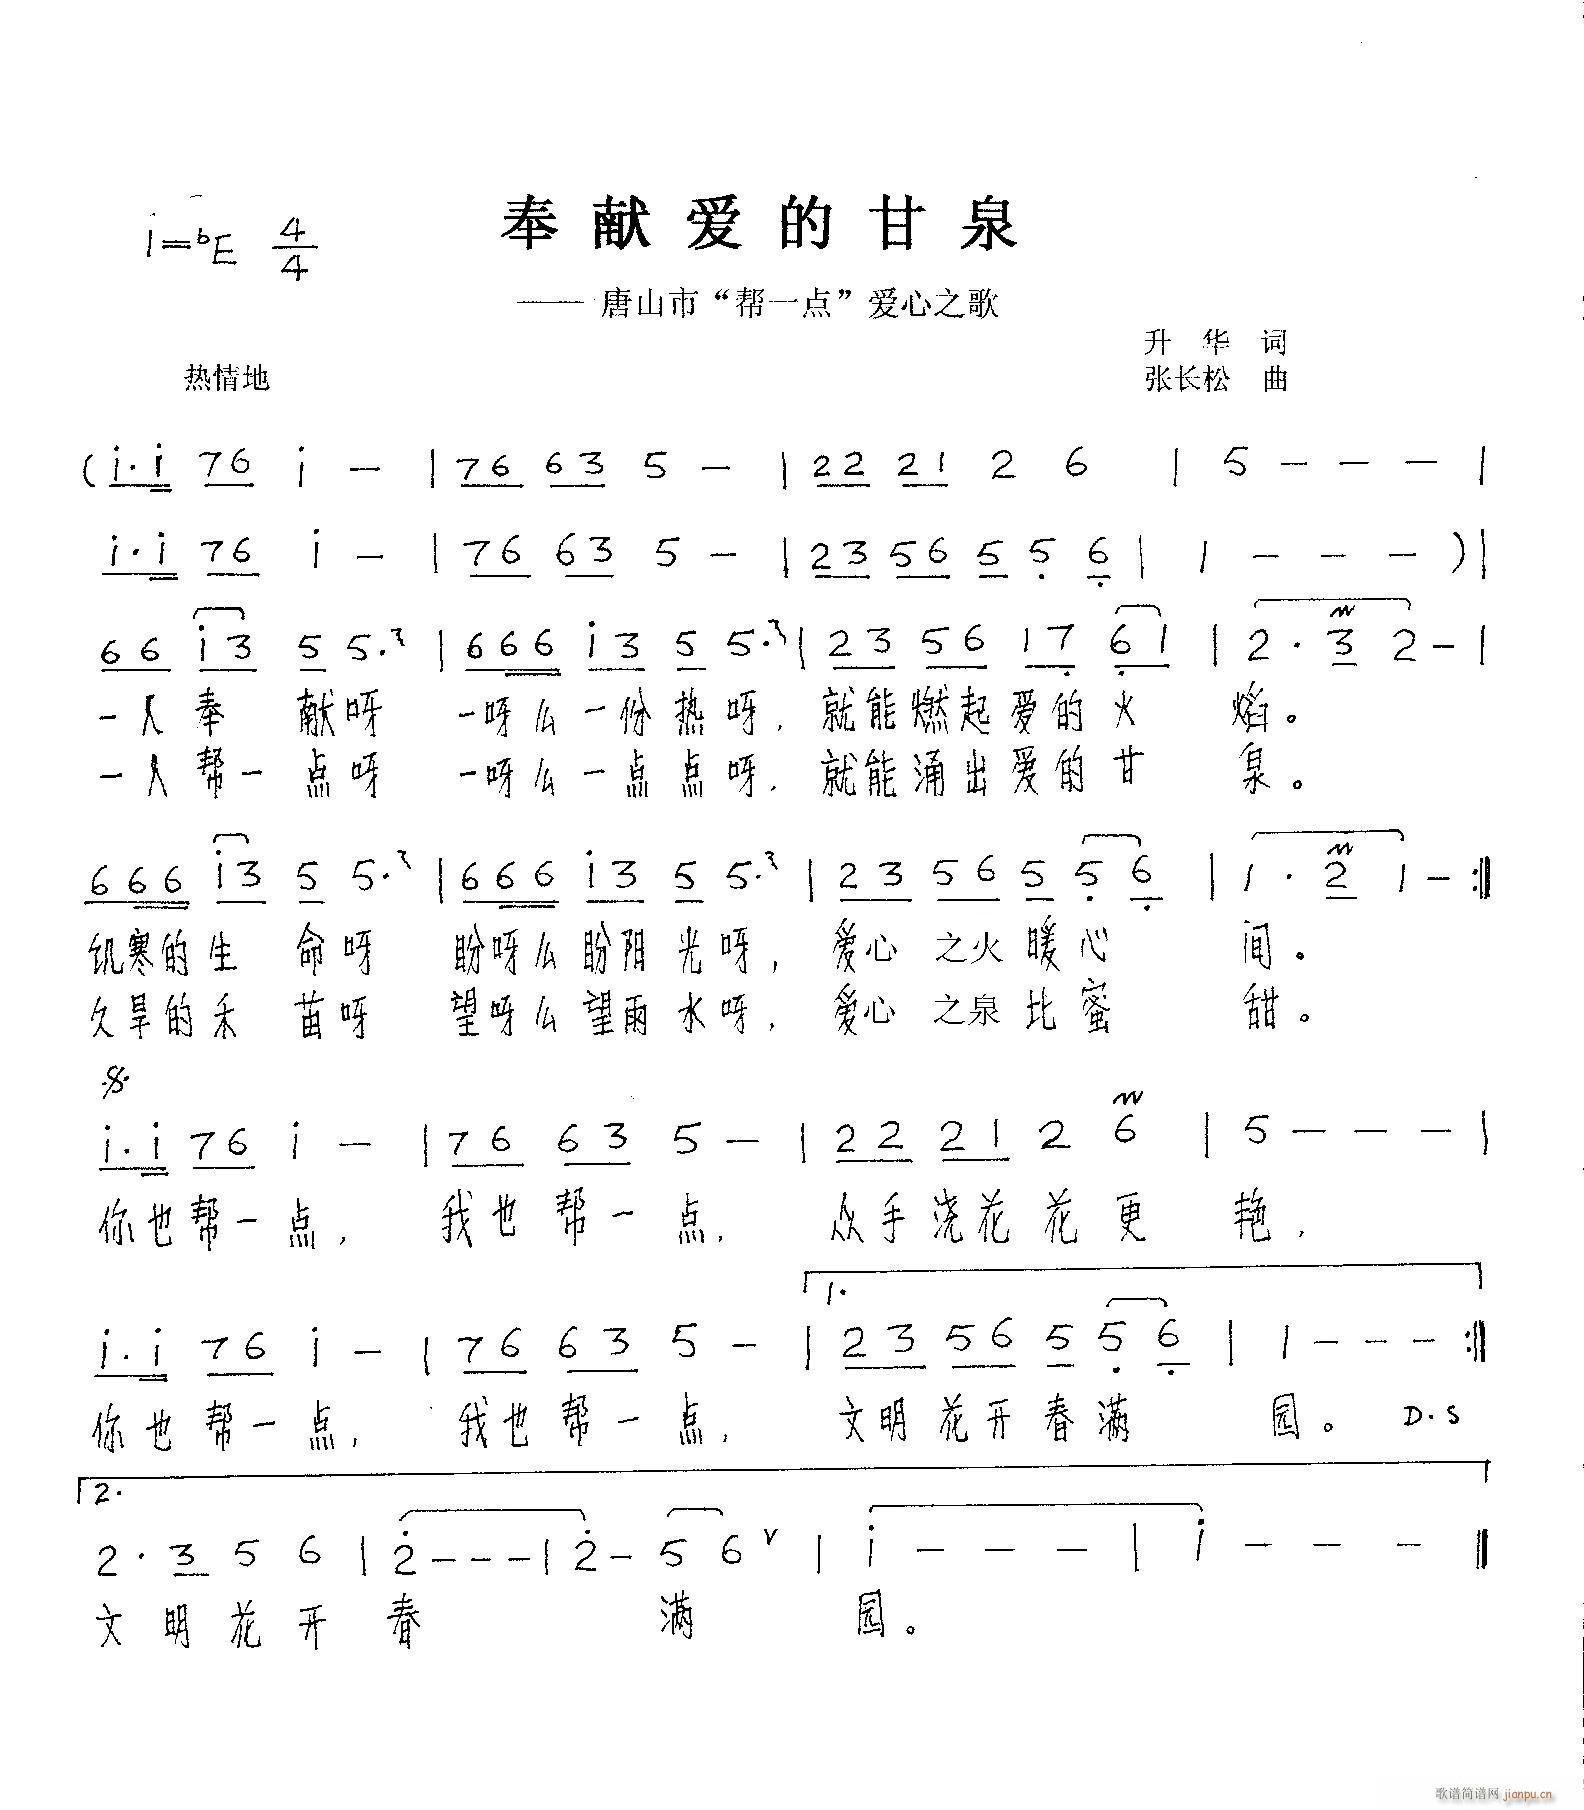 奉献爱的甘泉
1=ᵇE 4/4
——唐山市“帮一点”爱心之歌
升 华 词
热情地
张长松 曲
(i·i 76 i — | 76 63 5 — | 22 21 2 6 | 5 — — — |
i·i 76 i — | 76 63 5 — | 23 56 5 5 6 | 1 — — — )|
66 i3 5 5·3 | 666 i3 5 5·3 | 23 56 17 61 | 2·3 2— |
一人奉 献呀 一呀么一份热呀, 就能燃起爱的火 焰。
一人帮一点呀 一呀么一点点呀, 就能涌出爱的甘 泉。
666 i3 5 5·3 | 666 i3 5 5·3 | 23 56 5 5 6 | 1·2 1— :||
饥寒的生 命呀 盼呀么盼阳光呀, 爱心 之火暖心 间。
久旱的禾 苗呀 望呀么望雨水呀, 爱心 之泉比蜜 甜。
𝄋
i·i 76 i — | 76 63 5 — | 22 21 2 6 | 5 — — — |
你也帮一点, 我也帮一点, 众手浇花花更 艳,
1.
i·i 76 i — | 76 63 5 — | 23 56 5 5 6 | 1 — — — :||
你也帮一点, 我也帮一点, 文明花开春满 园。 D.S
2.
2·3 5 6 | 2̇ — — — | 2̇ — 5 6 ∨ | i — — — | i — — — ||
文明花开春 满 园。
歌谱简谱网 jianpu.cn